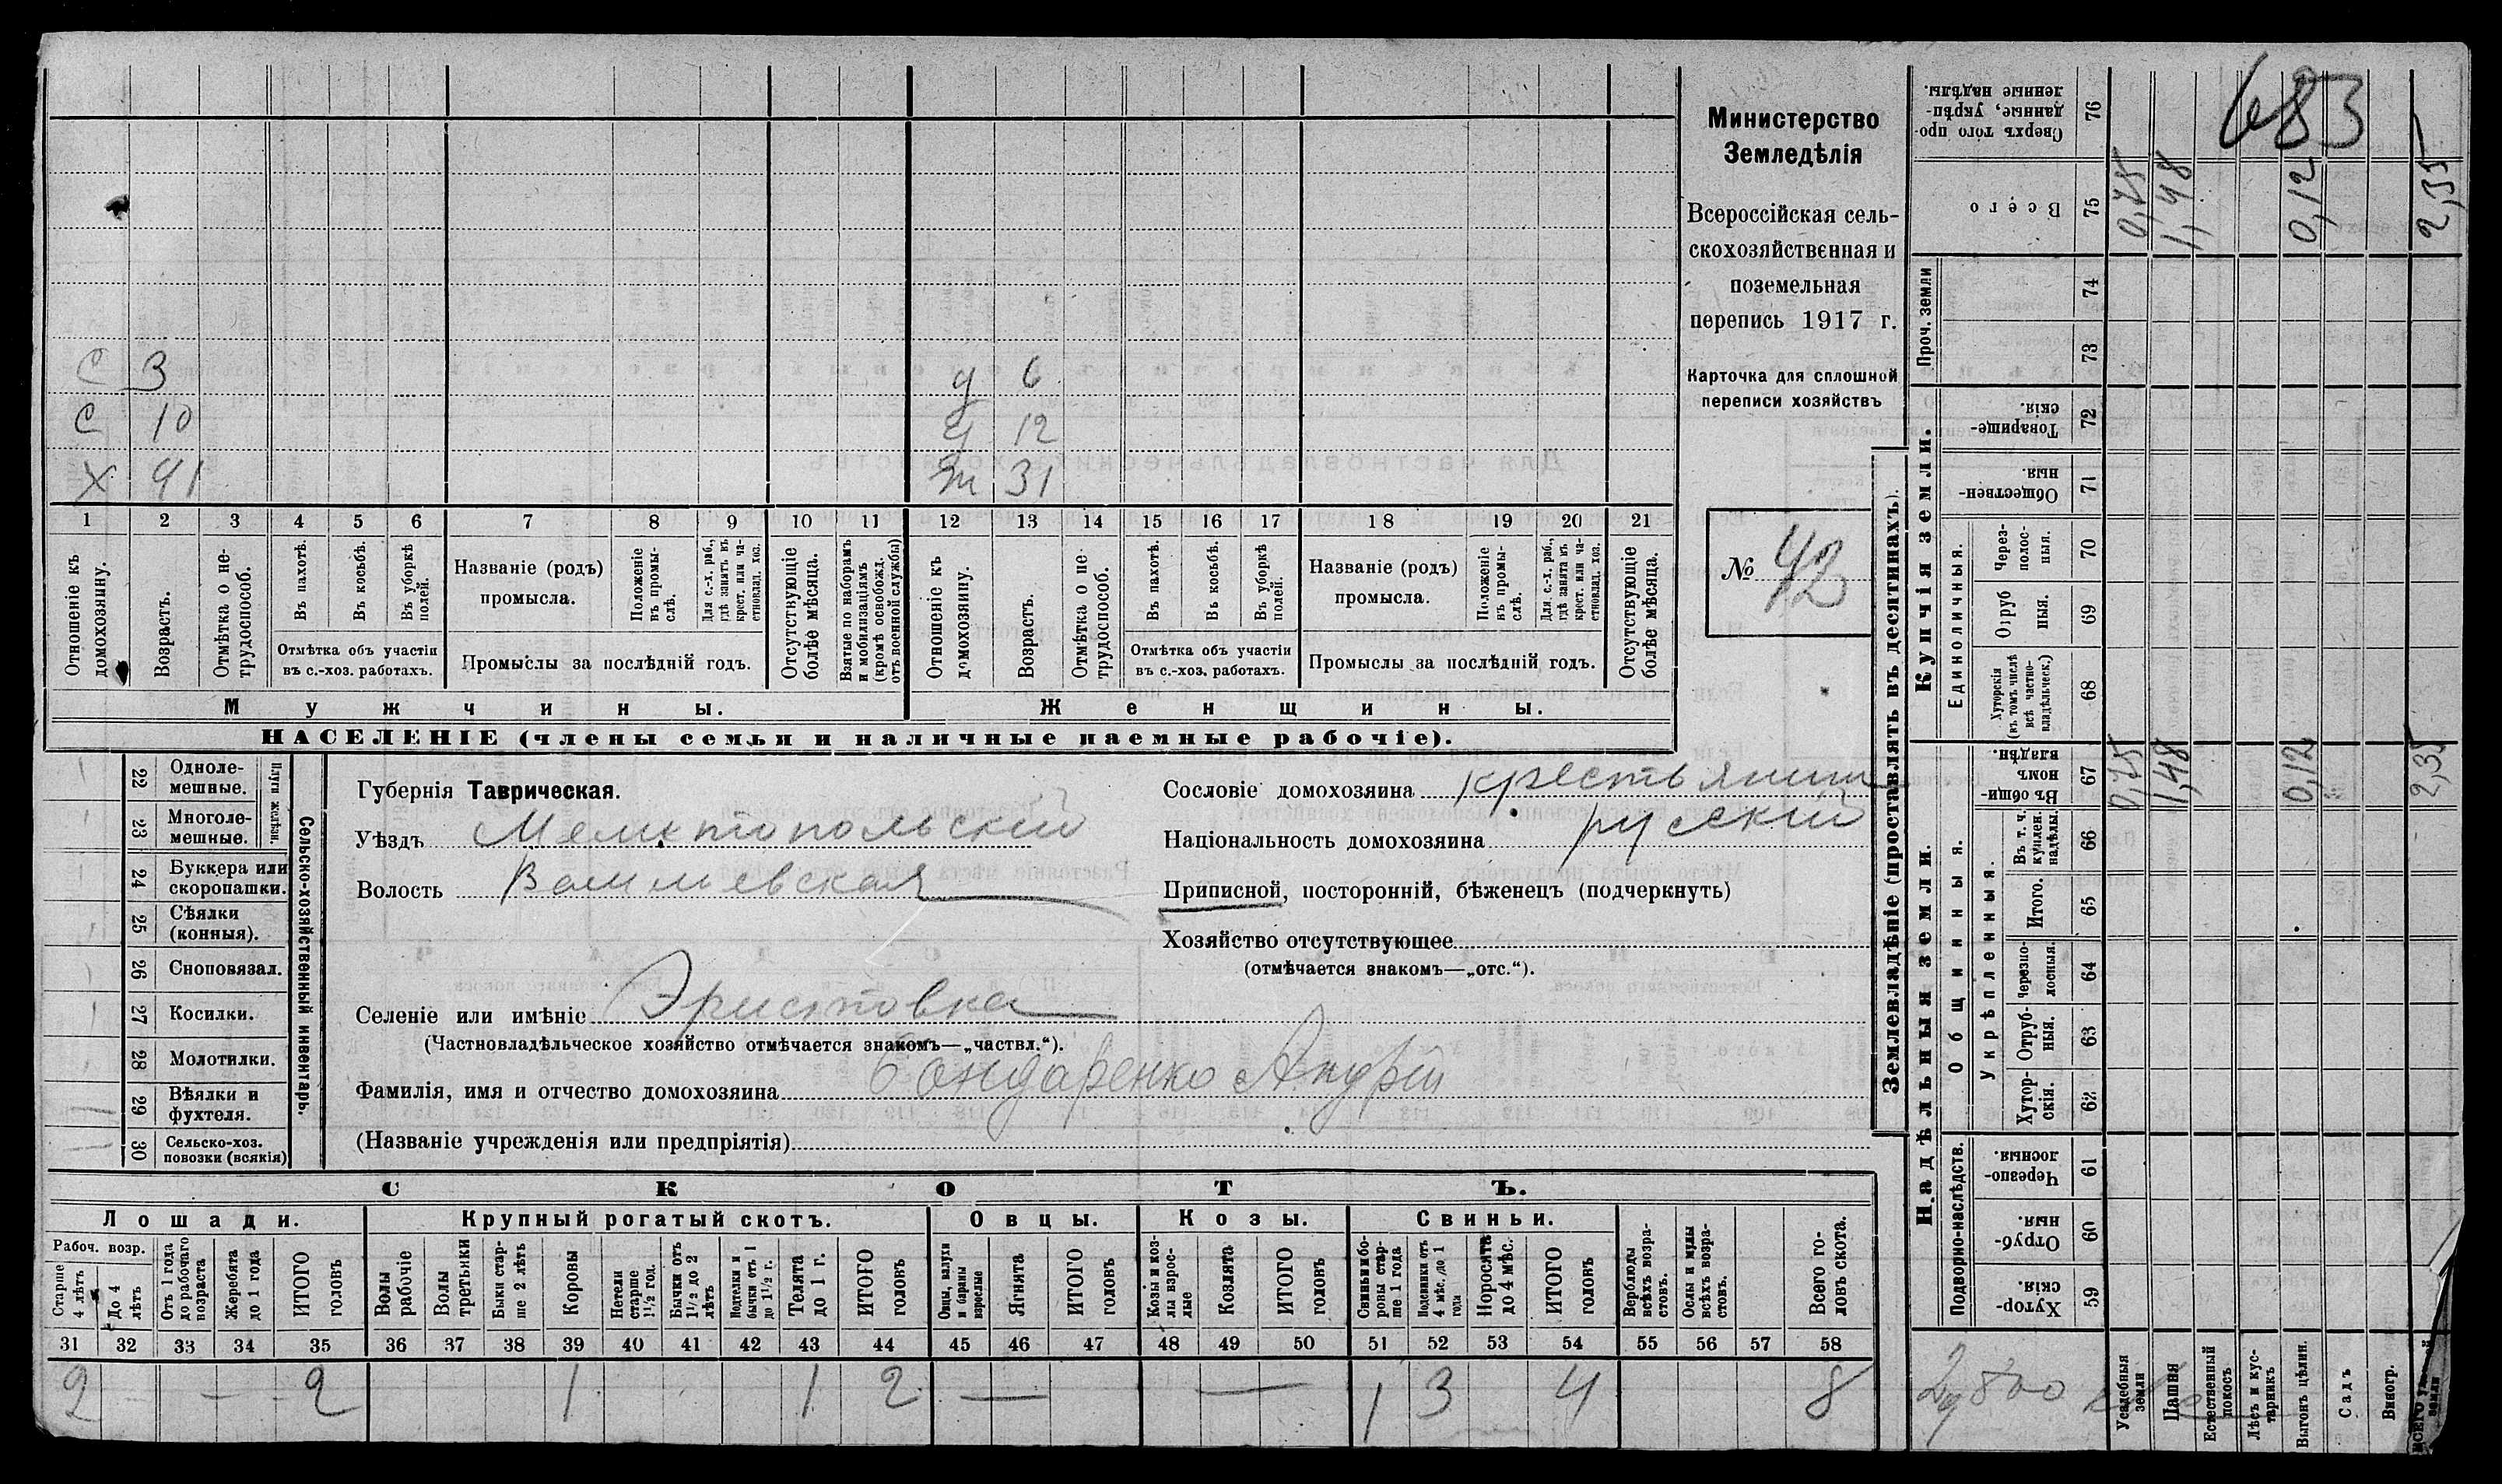 683
Министерство
Земледѣлія
Всероссійская сель-
скохозяйственная и
поземельная
перепись 1917 г.
Карточка для сплошной
переписи хозяйствъ
№ 42
С 3
С 10
Х 41
д 6
д 12
ж 31
1 2 3 4 5 6 7 8 9 10 11 12 13 14 15 16 17 18 19 20 21
Отношеніе къ домохозяину.
Возрастъ.
Отмѣтка о не-трудоспособ.
Въ пахотѣ.
Въ косьбѣ.
Въ уборкѣ полей.
Отмѣтка объ участіи
въ с.-хоз. работахъ.
Названіе (родъ)
промысла.
Положеніе въ промы-слѣ.
Для с.-х. раб., гдѣ занятъ въ крест. или ча-стновлад. хоз.
Промыслы за послѣдній годъ.
Отсутствующіе болѣе мѣсяца.
Взятые по наборамъ и мобилизаціямъ (кромѣ освобожд. отъ военной службы)
Отношеніе къ домохозяину.
Возрастъ.
Отмѣтка о не-трудоспособ.
Въ пахотѣ.
Въ косьбѣ.
Въ уборкѣ полей.
Отмѣтка объ участіи
въ с.-хоз. работахъ.
Названіе (родъ)
промысла.
Положеніе въ промы-слѣ.
Для с.-х. раб., гдѣ занята въ крест. или ча-стновлад. хоз.
Промыслы за послѣдній годъ.
Отсутствующіе болѣе мѣсяца.
Мужчины.
Женщины.
НАСЕЛЕНІЕ (члены семьи и наличные наемные рабочіе).
Сельско-хозяйственный инвентарь.
Плуги желѣзн.
22 Одноле-мешные.
23 Многоле-мешные.
24 Буккера или скоропашки.
25 Сѣялки (конныя).
26 Сноповязал.
27 Косилки.
28 Молотилки.
29 Вѣялки и фухтеля.
30 Сельско-хоз. повозки (всякія)
Губернія Таврическая.
Уѣздъ Мелитопольскій
Волость
Сословіе домохозяина крестьянин
Національность домохозяина русскій
Приписной, посторонній, бѣженецъ (подчеркнуть)
Хозяйство отсутствующее
(отмѣчается знакомъ—„отс.“).
Селеніе или имѣніе Эристовка
(Частновладѣльческое хозяйство отмѣчается знакомъ—„частвл.“).
Фамилія, имя и отчество домохозяина Бондаренко Андрей
(Названіе учрежденія или предпріятія)
СКОТЪ.
Лошади.
Крупный рогатый скотъ.
Овцы.
Козы.
Свиньи.
Рабоч. возр.
Старше 4 лѣтъ
До 4 лѣтъ
Отъ 1 года до рабочаго возраста
Жеребята до 1 года
ИТОГО головъ
Волы рабочіе
Волы третьяки
Быки стар-ше 2 лѣтъ
Коровы
Нетели старше 1½ год.
Бычки отъ 1½ до 2 лѣтъ
Подтелки и бычки отъ 1 до 1½ г.
Телята до 1 г.
ИТОГО головъ
Овцы, валухи и бараны взрослые
Ягнята
ИТОГО головъ
Козы и коз-лы взрос-лые
Козлята
ИТОГО головъ
Свиньи и бо-ровы стар-ше 1 года
Подсвинки отъ 4 мѣс. до 1 года
Поросята до 4 мѣс.
ИТОГО головъ
Верблюды всѣхъ возра-стовъ.
Ослы и мулы всѣхъ возра-стовъ.
Всего го-ловъ скота.
31 32 33 34 35 36 37 38 39 40 41 42 43 44 45 46 47 48 49 50 51 52 53 54 55 56 57 58
2 — 2 1 1 2 — — 1 3 4 8
Землевладѣніе (проставлять въ десятинахъ).
Надѣльныя земли.
Купчія земли.
Проч. земли
Подворно-наслѣдств.
Общинныя.
Укрѣпленныя.
Единоличныя.
59 Хутор-скія.
60 Отруб-ныя.
61 Черезпо-лосныя.
62 Хутор-скія.
63 Отруб-ныя.
64 Черезпо-лосныя.
65 Итого.
66 Въ т. ч. куплен. надѣлы.
67 Въ общи-номъ владѣн.
68 Хуторскія (въ томъ числѣ всѣ частно-владѣльческ.)
69 Отруб ныя.
70 Через-полос-ныя.
71 Обществен-ныя
72 Товарище-скія.
73
74
75 Всего
76 Сверхъ того про-данные, укрѣп-ленные надѣлы.
Усадебныя земли
Пашня
Естественный покосъ
Лѣсъ и кус-тарникъ
Выгонъ цѣлин.
Садъ
Виногр.
0,75 1,48 0,12 2,35
0,75 1,48 0,12 2,35